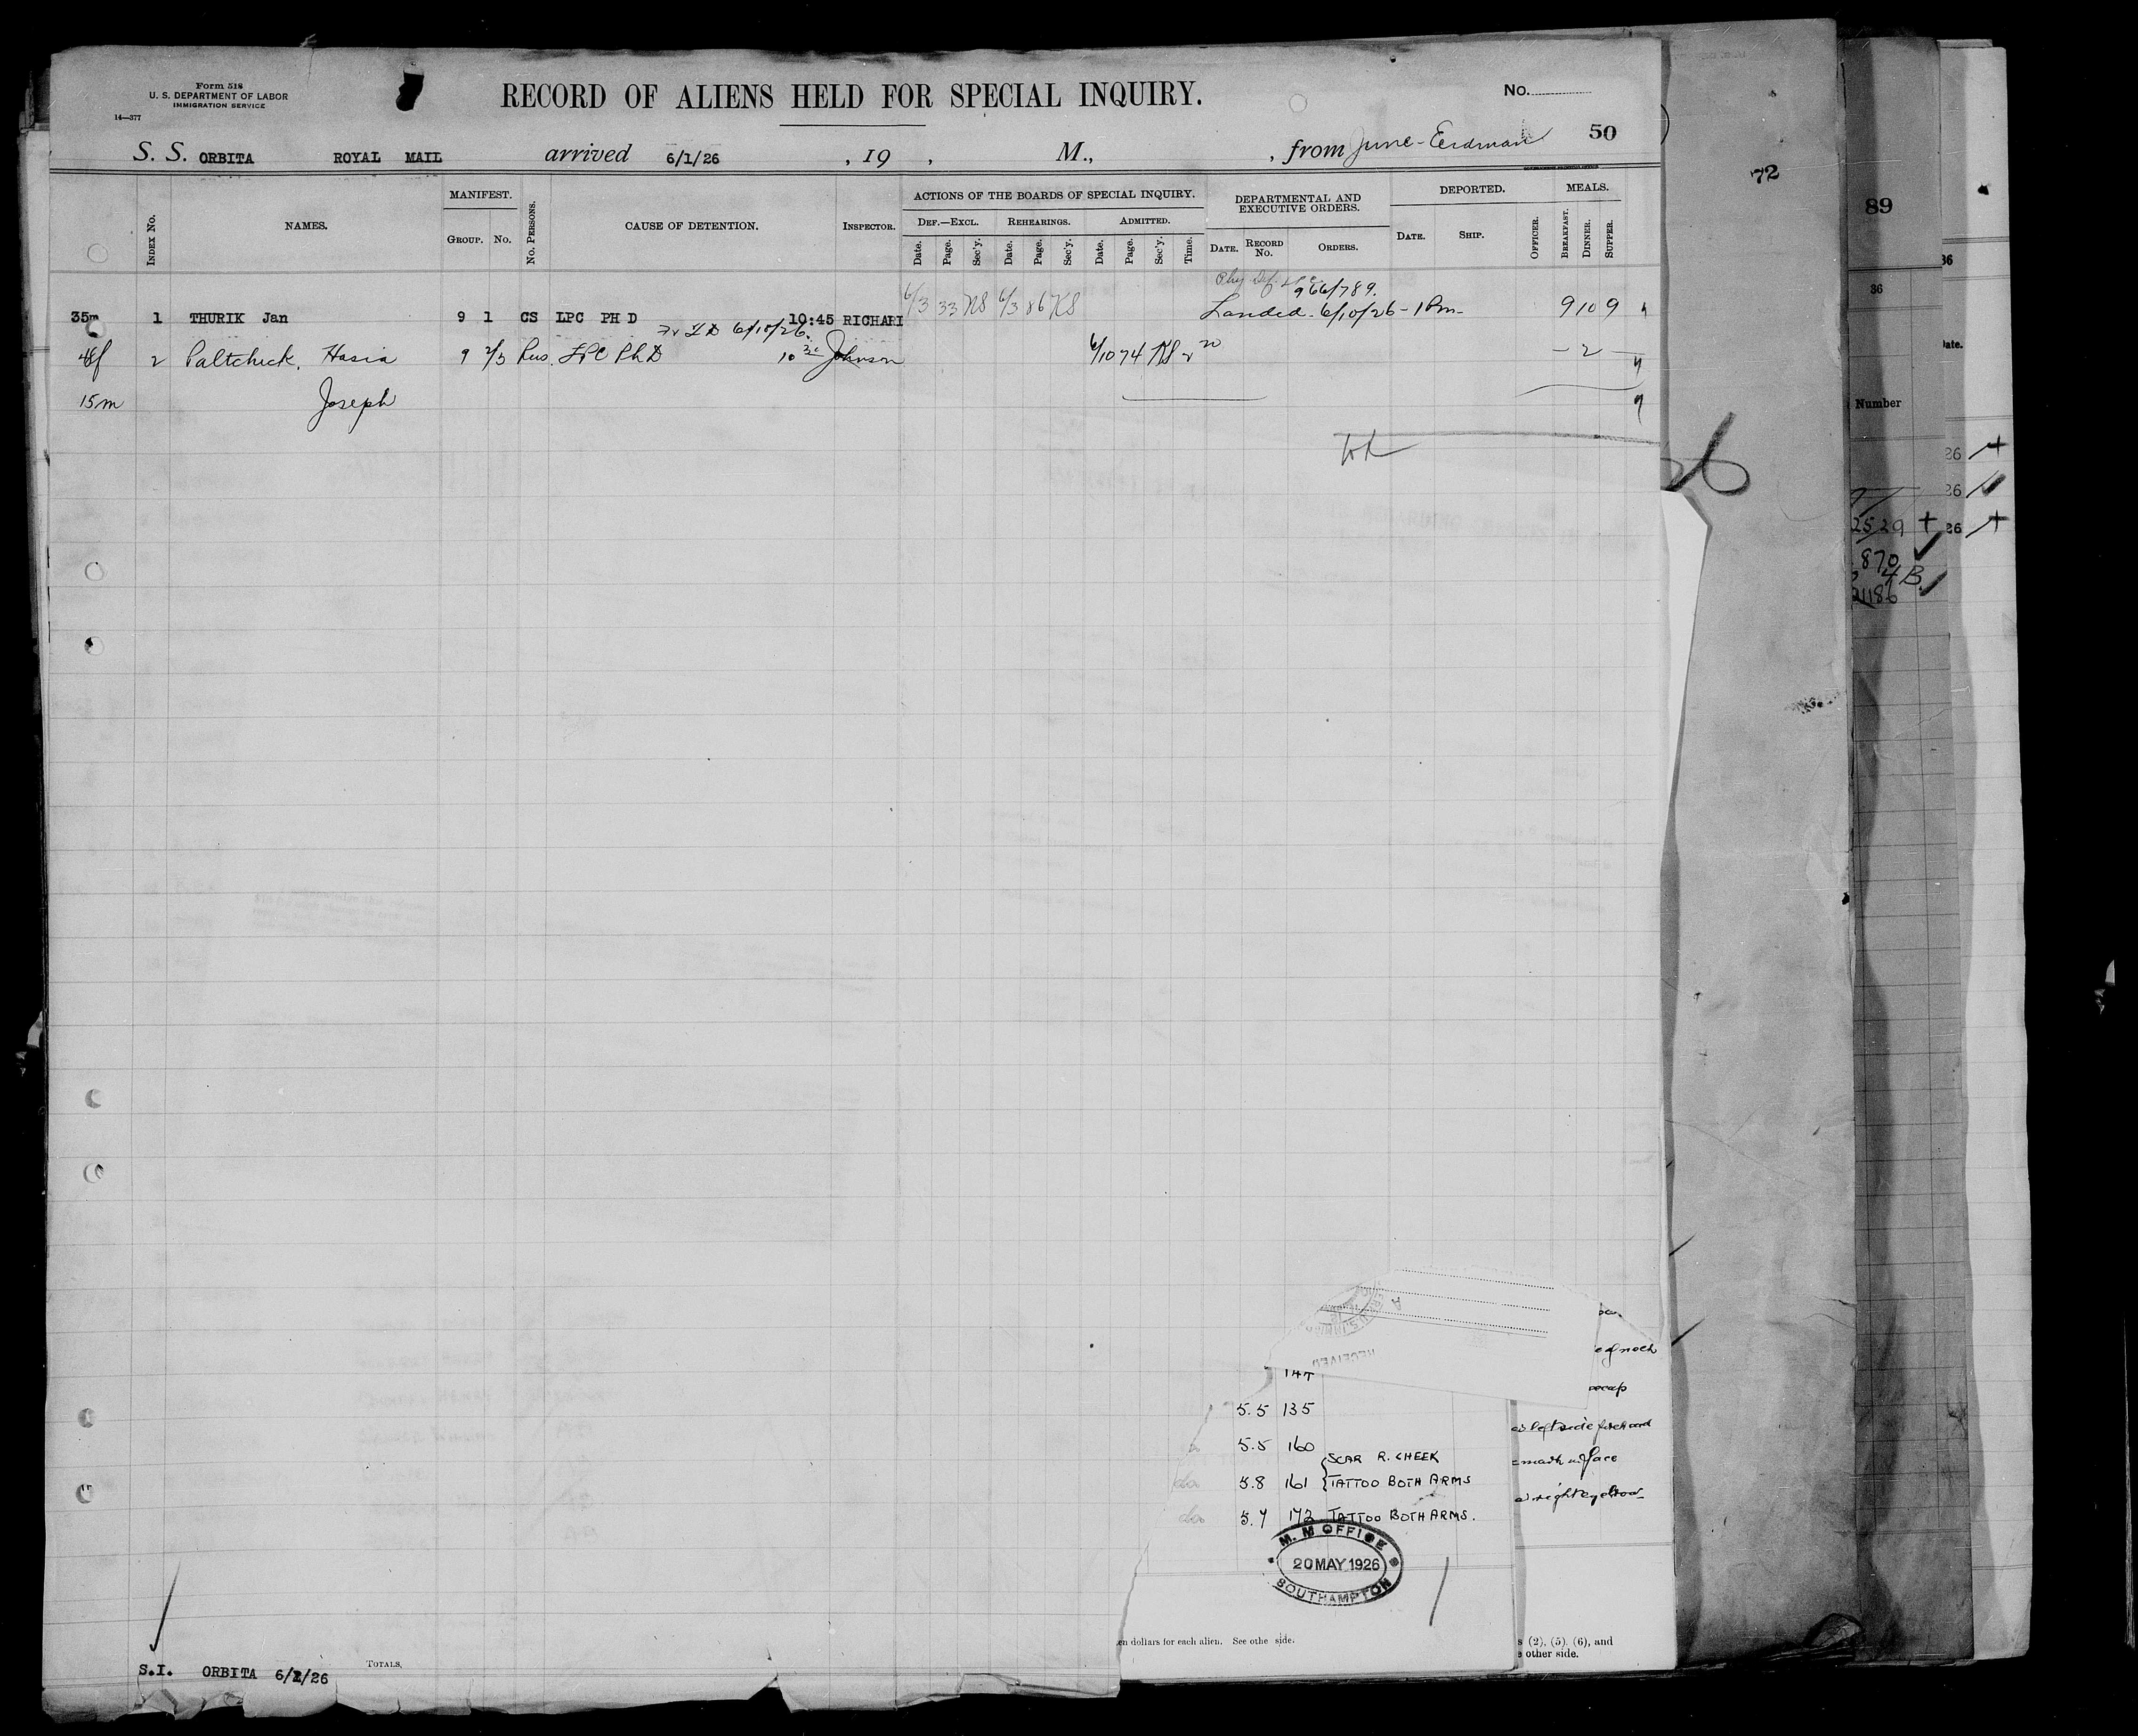 Form 518
U. S. DEPARTMENT OF LABOR
IMMIGRATION SERVICE
14—377
RECORD OF ALIENS HELD FOR SPECIAL INQUIRY.
No.
50
S. S. ORBITA ROYAL MAIL arrived 6/1/26 , 19 , M., , from June-Erdman
INDEX No. NAMES. MANIFEST. GROUP. No. No. PERSONS. CAUSE OF DETENTION. INSPECTOR.
ACTIONS OF THE BOARDS OF SPECIAL INQUIRY.
DEF.—EXCL. REHEARINGS. ADMITTED.
Date. Page. Sec'y. Date. Page. Sec'y. Date. Page. Sec'y. Time.
DEPARTMENTAL AND EXECUTIVE ORDERS.
DATE. RECORD No. ORDERS.
DEPORTED.
DATE. SHIP. OFFICER.
MEALS.
BREAKFAST. DINNER. SUPPER.
966/789.
35m 1 THURIK Jan 9 1 CS LPC PH D 10:45 RICHARI 6/3 33 NS 6/3 86 KS Landed. 6/10/26 - 1 Pm 9 10 9
6/10/26
f 2 Paltchick, Hasia 9 2/3 Rus. LPC PhD 10 30 Johnson 6/10 74 KS 2 20 — 2 —
15m Joseph
S.I. ORBITA 6/1/26
TOTALS,
RECEIVED
5.5 135
5.5 160
do 5.8 161 SCAR R. CHEEK
TATTOO BOTH ARMS
do 5.7 172 TATTOO BOTH ARMS.
M. M OFFICE
20 MAY 1926
SOUTHAMPTON
en dollars for each alien. See othe side.
s (2), (5), (6), and
e other side.
72
89
36
36
Date.
Number
26
26
2529
26
870
4B
21186